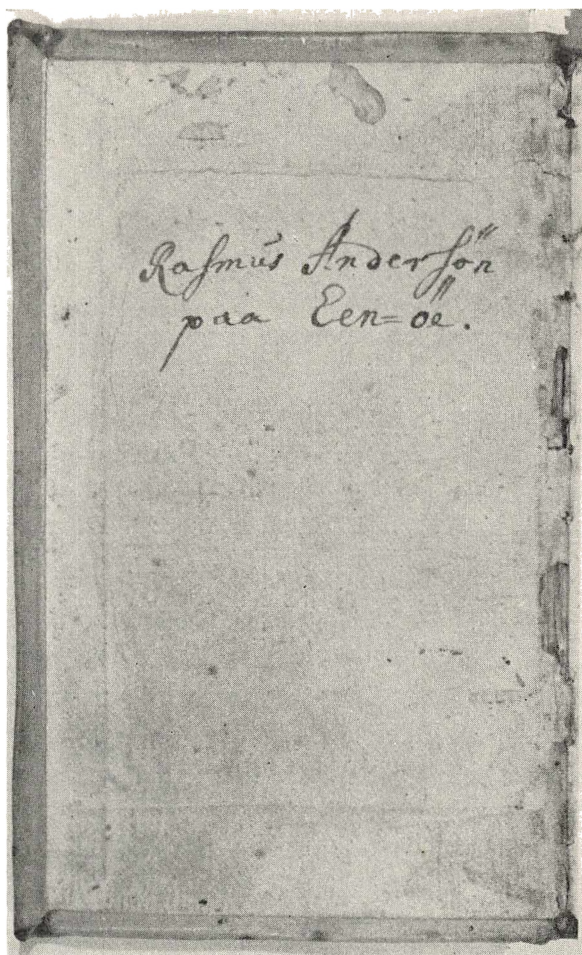 Raſmus Anderſön
paa Een=öe.